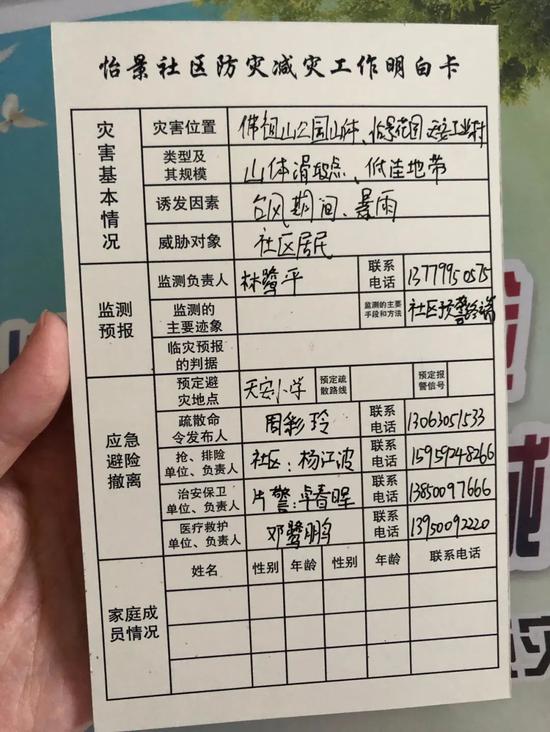 怡景社区防灾减灾工作明白卡
灾害基本情况
灾害位置 佛祖山公园山体、怡景花园 天安工业村
类型及其规模 山体滑坡点、低洼地带
诱发因素 台风期间、暴雨
威胁对象 社区居民
监测预报
监测负责人 林鹭平 联系电话 13779950575
监测的主要迹象 监测的主要手段和方法 社区预警终端
临灾预报的判据
应急避险撤离
预定避灾地点 天安小学 预定疏散路线 预定报警信号
疏散命令发布人 周彩玲 联系电话 13063051533
抢、排险单位、负责人 社区:杨江波 联系电话 15959248266
治安保卫单位、负责人 片警:卓春晖 联系电话 13850097666
医疗救护单位、负责人 邓鹭鹏 联系电话 13950092220
家庭成员情况
姓名 性别 年龄 性别 年龄 联系电话